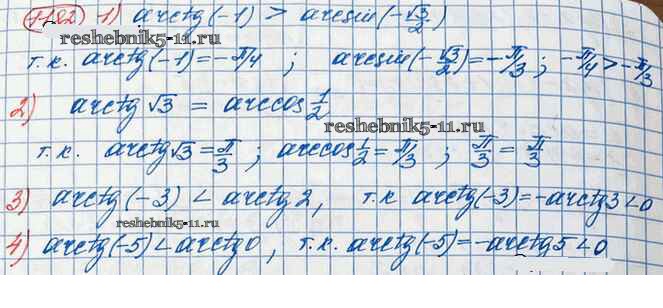 1182 1) arctg(-1) > arcsin(-√3/2)
reshebnik5-11.ru
т.к. arctg(-1)=-π/4 ; arcsin(-√3/2)=-π/3 ; -π/4 > -π/3
2) arctg √3 = arccos 1/2
reshebnik5-11.ru
т.к. arctg√3 = π/3 ; arccos 1/2 = π/3 ; π/3 = π/3
3) arctg(-3) < arctg 2, т.к arctg(-3)=-arctg3<0
reshebnik5-11.ru
4) arctg(-5)<arctg0, т.к. arctg(-5)=-arctg5<0